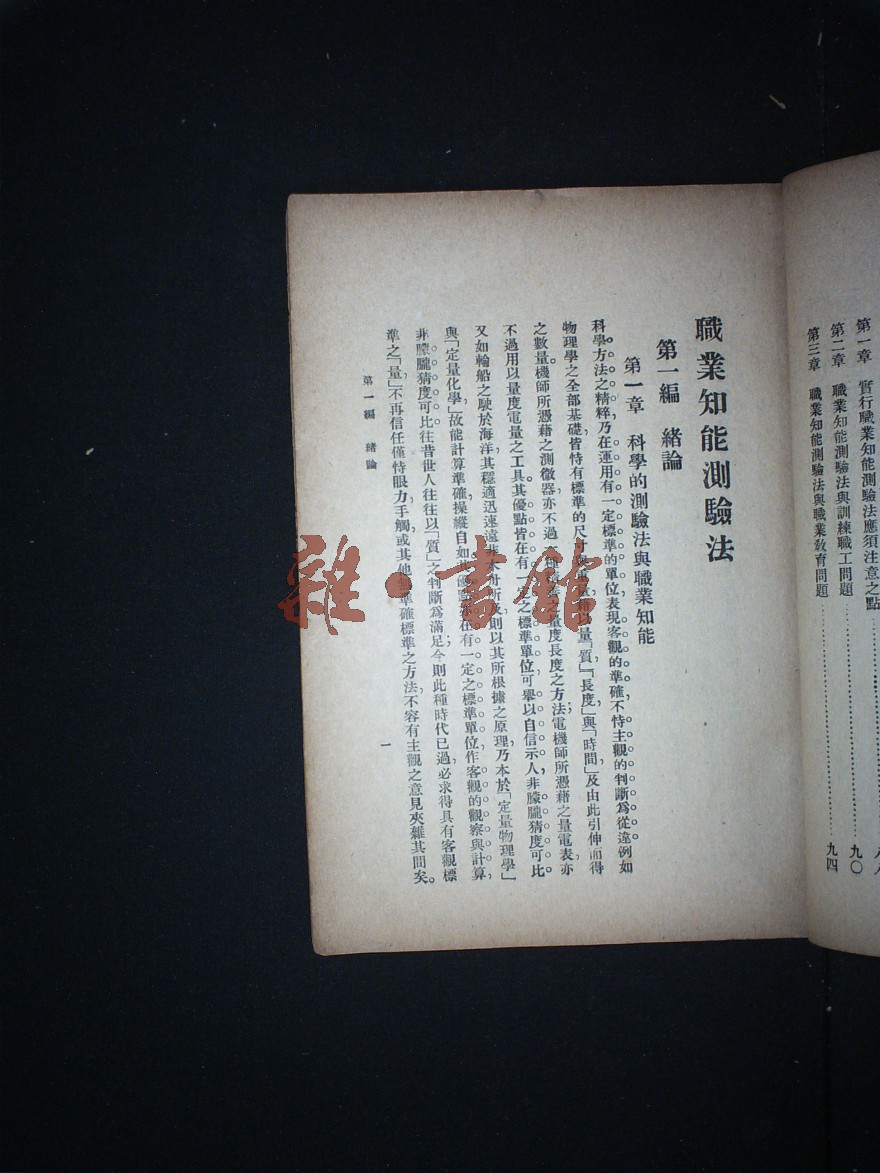 第一章　實行職業知能測驗法應須注意之點
第二章　職業知能測驗法與訓練職工問題……九〇
第三章　職業知能測驗法與職業教育問題……九四
職業知能測驗法
第一編　緒論
第一章　科學的測驗法與職業知能
科學方法之精粹乃在運用有一定標準的單位表現客觀的準確不恃主觀的判斷爲從違例如
物理學之全部基礎皆特有標準的尺寸與重量藉以量「質」「長度」與「時間」及由此引伸而得
之數量機師所憑藉之測微器亦不過一種精密之量度長度之方法電機師所憑藉之量電表亦
不過用以量度電量之工具其優點皆在有一定之標準單位可舉以自信示人非朦朧猜度可比
又如輪船之駛於海洋其穩適迅速遠非木舟所及則以其所根據之原理乃本於「定量物理學」
與「定量化學」故能計算準確操縱自如其優點亦在有一定之標準單位作客觀的觀察與計算
非朦朧猜度可比往昔世人往往以「質」之判斷爲滿足今則此種時代已過必求得具有客觀標
準之「量」不再信任僅特眼力手觸或其他無準確標準之方法不容有主觀之意見夾雜其間矣。
第一編　緒論
一
雜·書館